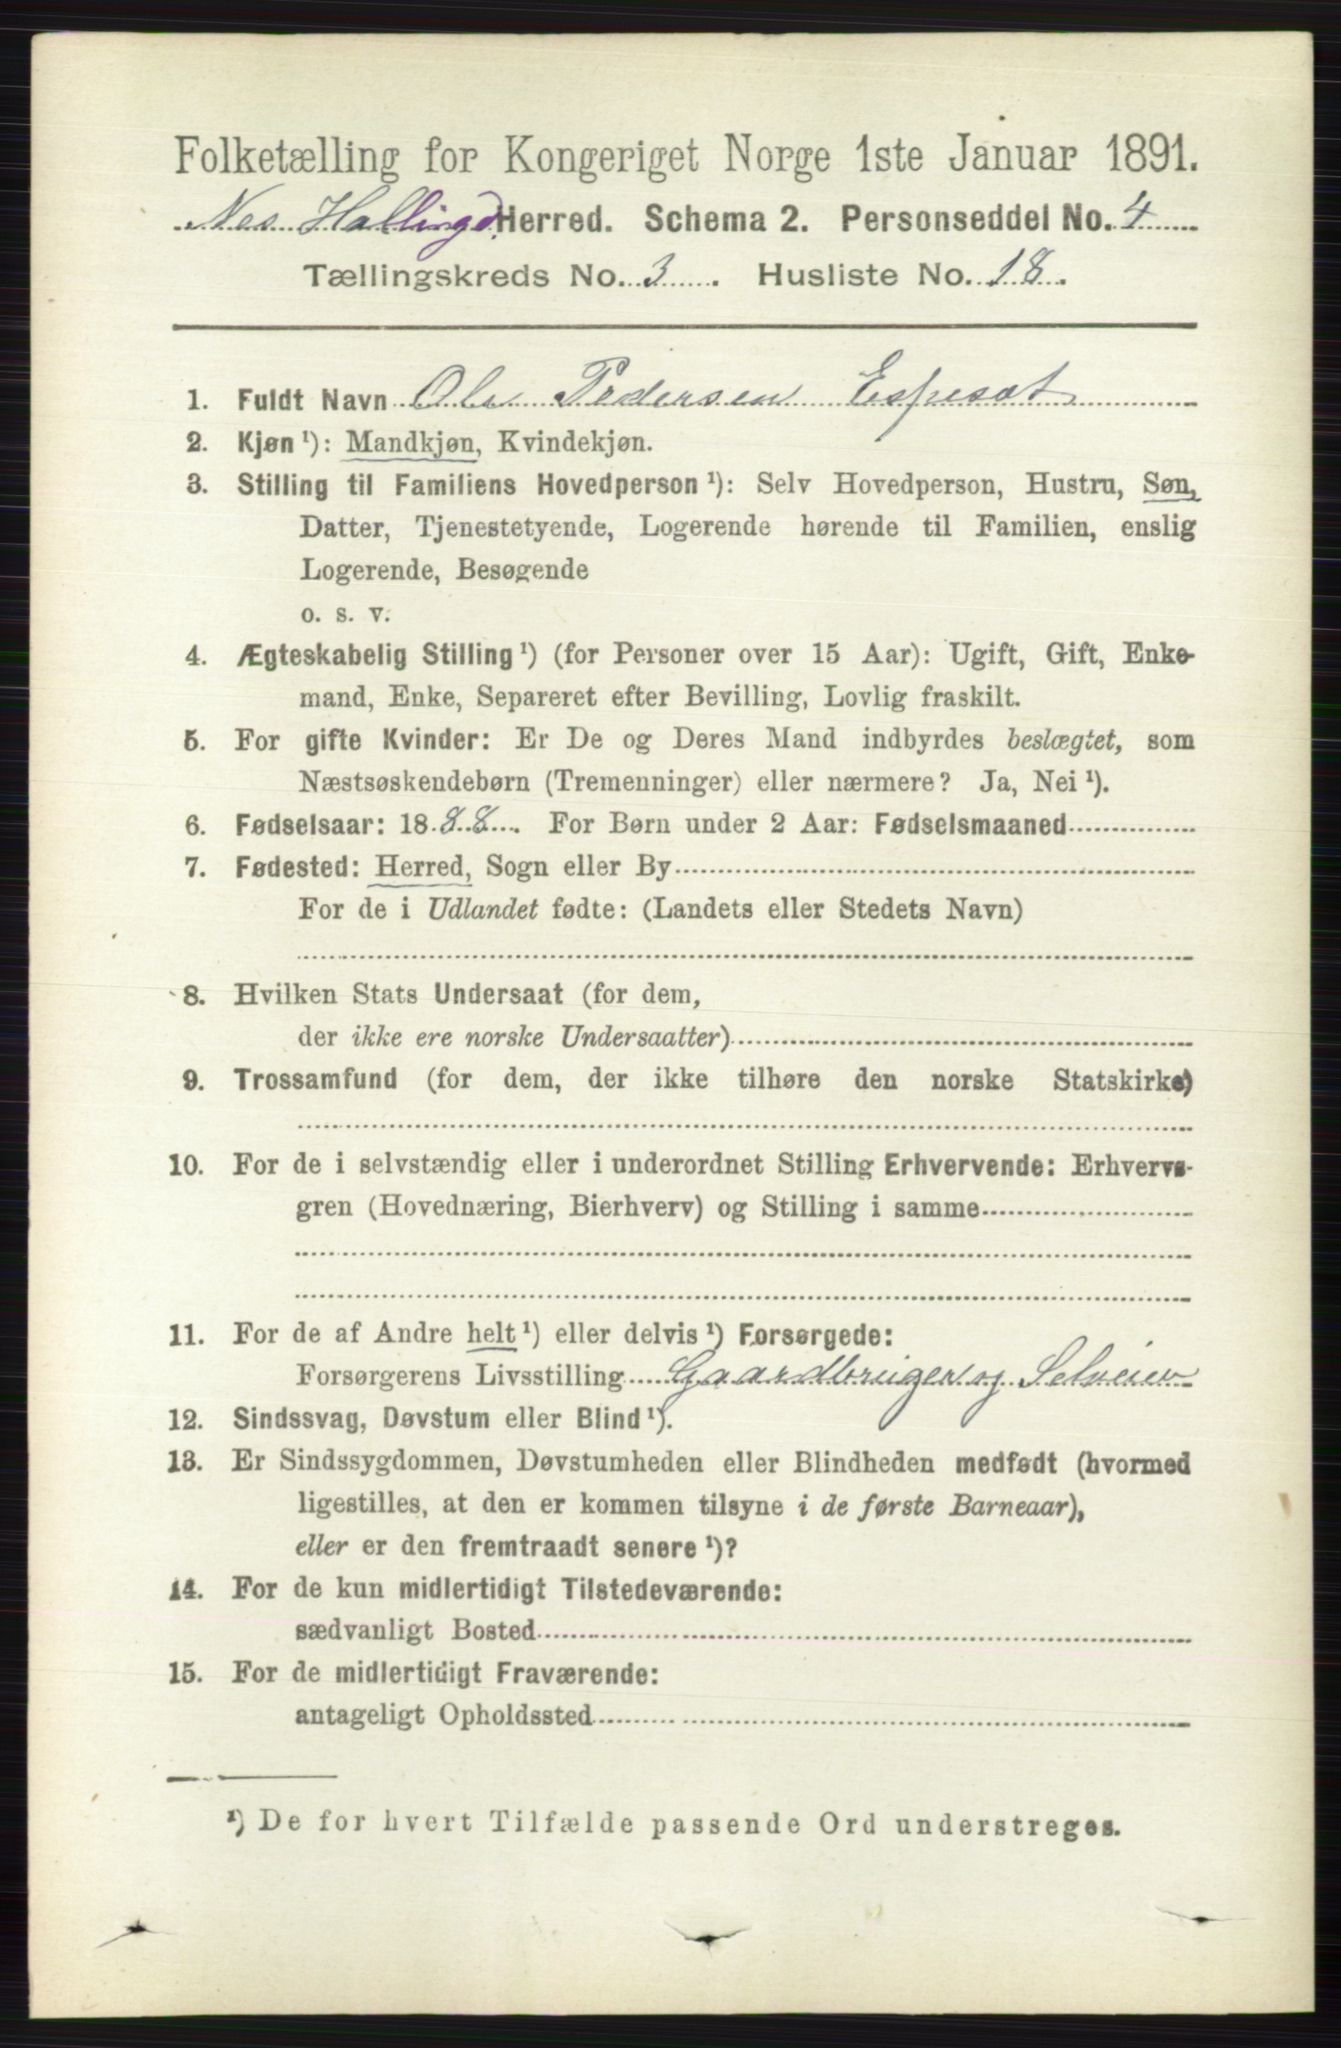 Folketælling for Kongeriget Norge 1ste Januar 1891.
Nes Hallingd. Herred. Schema 2. Personseddel No. 4
Tællingskreds No. 3. Husliste No. 18.
1. Fuldt Navn Ole Pedersen Espeset
2. Kjøn ¹): Mandkjøn, Kvindekjøn.
3. Stilling til Familiens Hovedperson ¹): Selv Hovedperson, Hustru, Søn,
Datter, Tjenestetyende, Logerende hørende til Familien, enslig
Logerende, Besøgende
o. s. v.
4. Ægteskabelig Stilling ¹) (for Personer over 15 Aar): Ugift, Gift, Enke-
mand, Enke, Separeret efter Bevilling, Lovlig fraskilt.
5. For gifte Kvinder: Er De og Deres Mand indbyrdes beslægtet, som
Næstsøskendebørn (Tremenninger) eller nærmere? Ja, Nei ¹).
6. Fødselsaar: 1888. For Børn under 2 Aar: Fødselsmaaned
7. Fødested: Herred, Sogn eller By
For de i Udlandet fødte: (Landets eller Stedets Navn)
8. Hvilken Stats Undersaat (for dem,
der ikke ere norske Undersaatter)
9. Trossamfund (for dem, der ikke tilhøre den norske Statskirke)
10. For de i selvstændig eller i underordnet Stilling Erhvervende: Erhvervs-
gren (Hovednæring, Bierhverv) og Stilling i samme
11. For de af Andre helt ¹) eller delvis ¹) Forsørgede:
Forsørgerens Livsstilling Gaardbruger og Selveier
12. Sindssvag, Døvstum eller Blind ¹).
13. Er Sindssygdommen, Døvstumheden eller Blindheden medfødt (hvormed
ligestilles, at den er kommen tilsyne i de første Barneaar),
eller er den fremtraadt senere ¹)?
14. For de kun midlertidigt Tilstedeværende:
sædvanligt Bosted
15. For de midlertidigt Fraværende:
antageligt Opholdssted
¹) De for hvert Tilfælde passende Ord understreges.